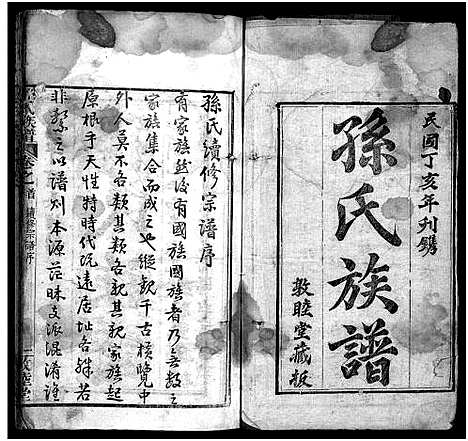 民國丁亥年刊鐫
孫氏族譜
敦睦堂藏板
孫氏續修宗譜序
有家族然後有國族國族者乃無數之
家族集合而成之也縱觀千古橫覽中
外人莫不各類其類各親其親家族起
原根乎天性特時代既遠居址各殊若
非繫之以譜則本源茫昧支派混淆誰
氏族譜 卷之 譜 續修宗譜序